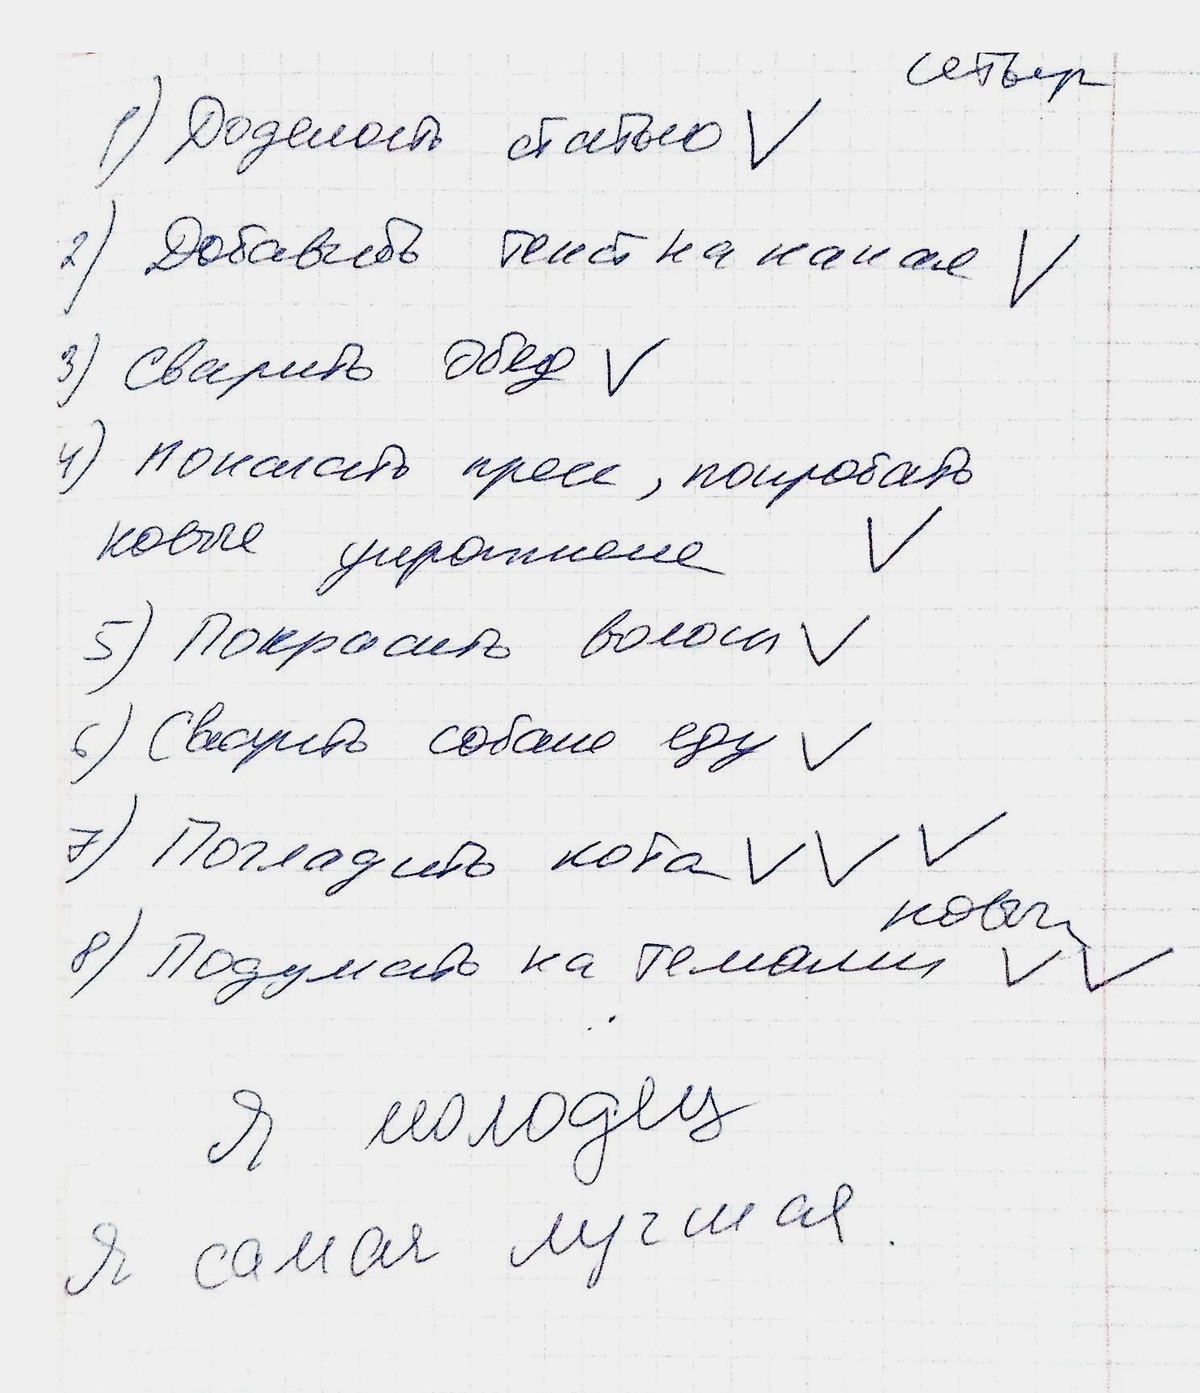 1) Доделать статью V
2) Добавить текст на канал V
3) Сварить обед V
4) Покачать пресс, попробовать
новые упражнене V
5) Покрасить волосы V
6) Сварить собаке еду V
7) Погладить кота V V V
новыми
8) Подумать на темами V V
Я молодец
Я самая лучшая.